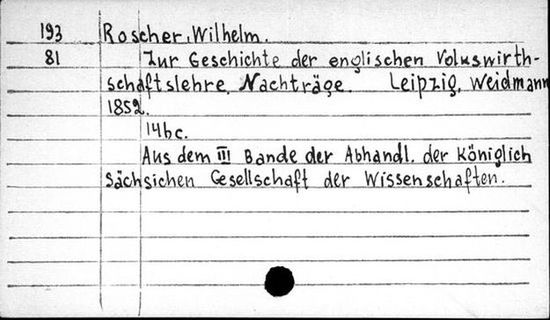 193 Roscher, Wilhelm.
81 Zur Geschichte der englischen Volkswirth-
schaftslehre, Nachträge. Leipzig, Weidmann
1852.
14bc.
Aus dem III Bande der Abhandl. der Königlich
Sächsichen Gesellschaft der Wissenschaften.